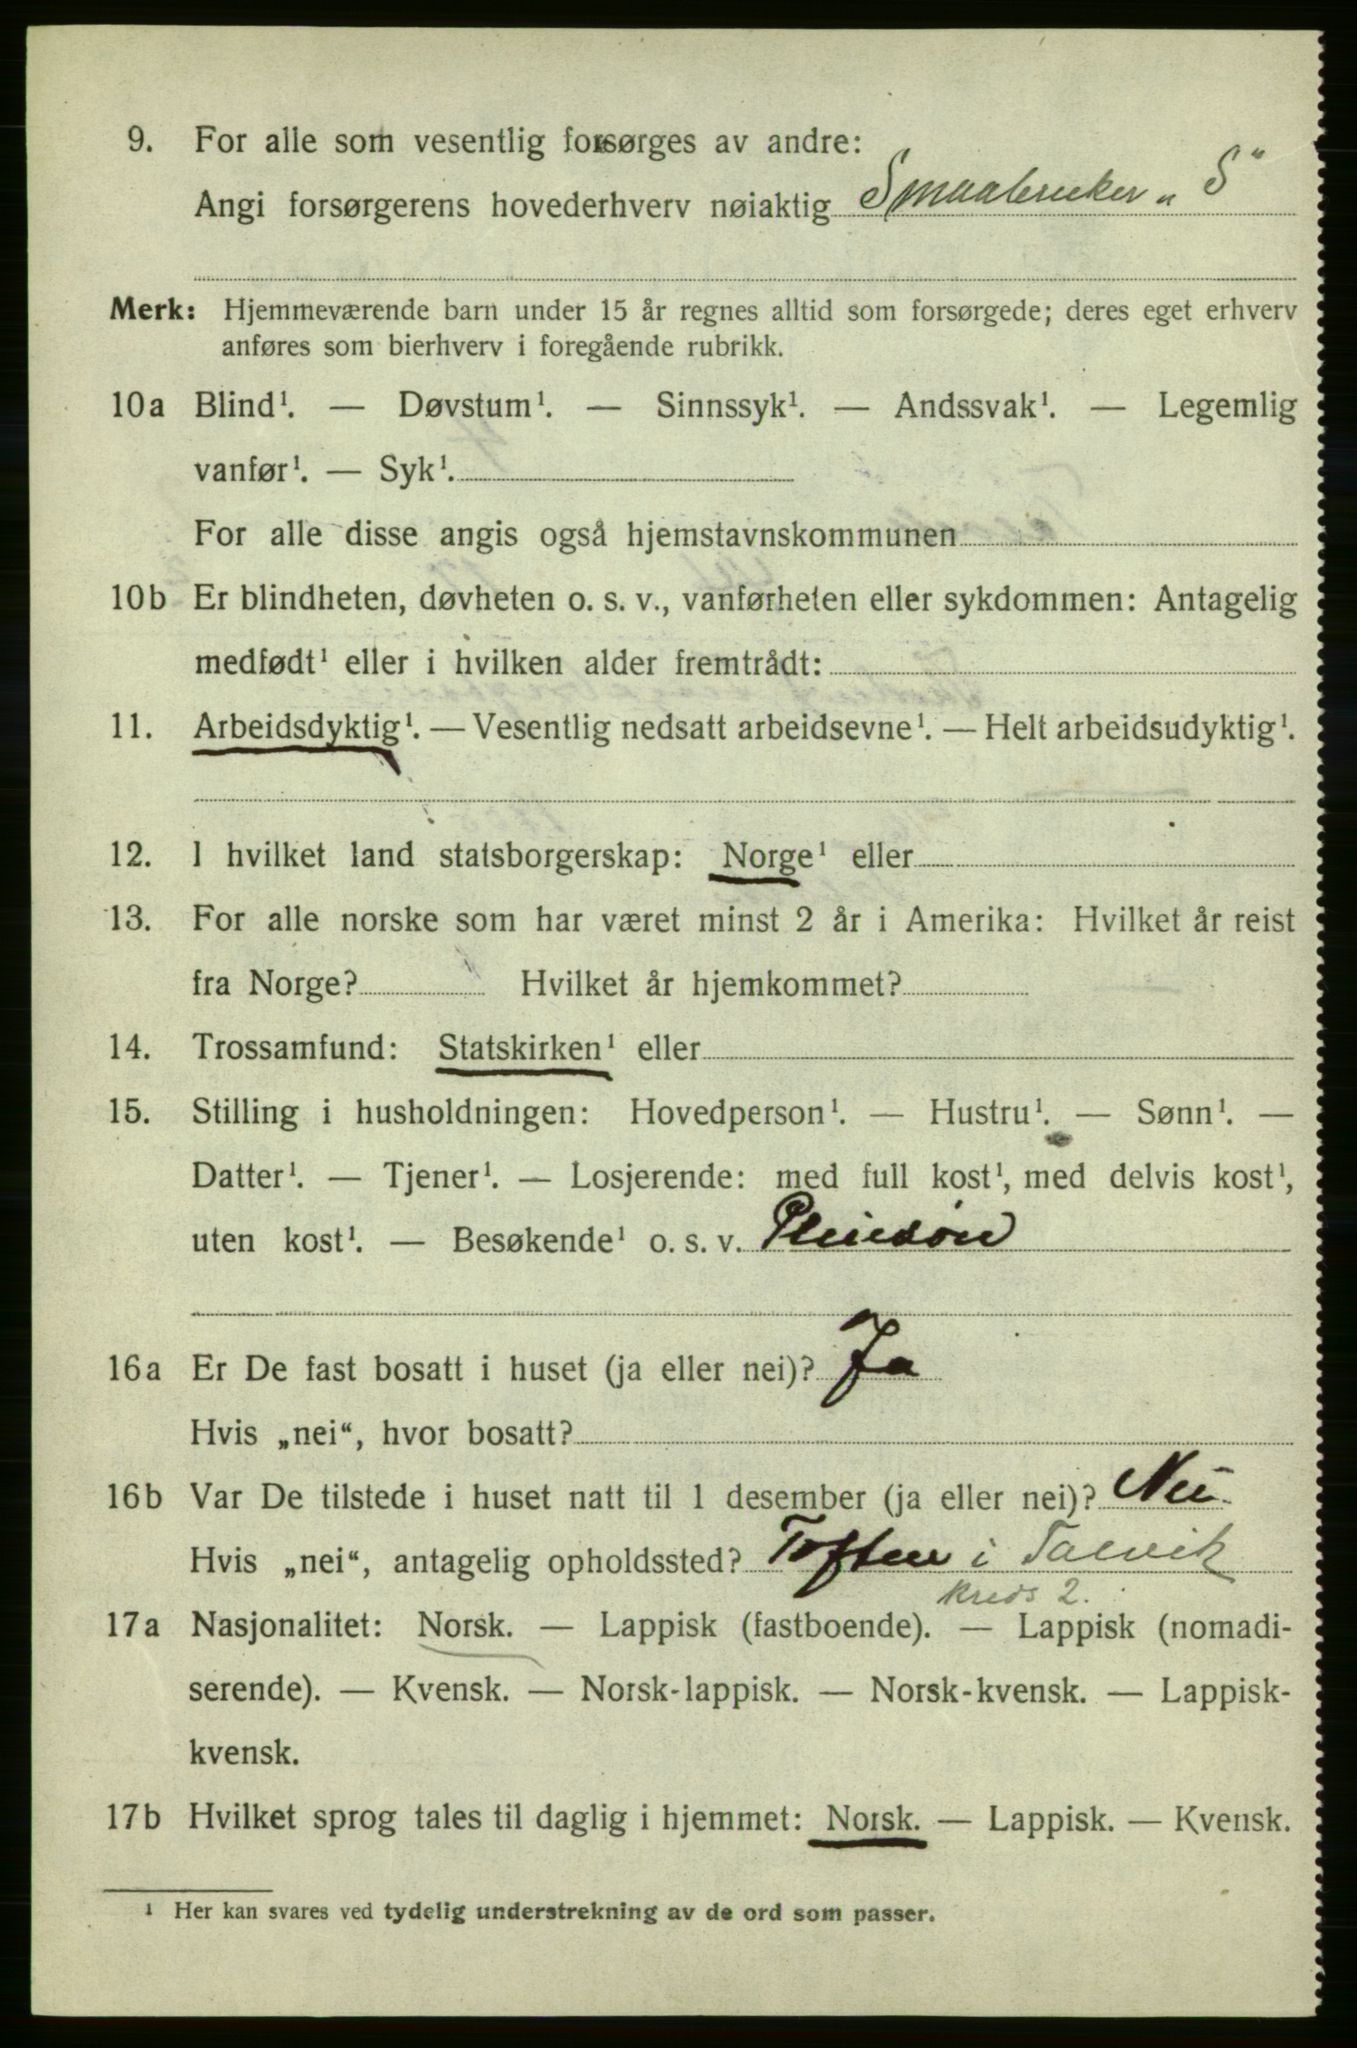 9. For alle som vesentlig forsørges av andre:
Angi forsørgerens hovederhverv nøiaktig Smaabruker „S“
Merk: Hjemmeværende barn under 15 år regnes alltid som forsørgede; deres eget erhverv
anføres som bierhverv i foregående rubrikk.
10a Blind¹. — Døvstum¹. — Sinnssyk¹. — Andssvak¹. — Legemlig
vanfør¹. — Syk¹.
For alle disse angis også hjemstavnskommunen
10b Er blindheten, døvheten o. s. v., vanførheten eller sykdommen: Antagelig
medfødt¹ eller i hvilken alder fremtrådt:
11. Arbeidsdyktig¹. — Vesentlig nedsatt arbeidsevne¹. — Helt arbeidsudyktig¹.
12. I hvilket land statsborgerskap: Norge¹ eller
13. For alle norske som har været minst 2 år i Amerika: Hvilket år reist
fra Norge? Hvilket år hjemkommet?
14. Trossamfund: Statskirken¹ eller
15. Stilling i husholdningen: Hovedperson¹. — Hustru¹. — Sønn¹. —
Datter¹. — Tjener¹. — Losjerende: med full kost¹, med delvis kost¹,
uten kost¹. — Besøkende¹ o. s. v. Pleiesøn
16a Er De fast bosatt i huset (ja eller nei)? Ja
Hvis „nei“, hvor bosatt?
16b Var De tilstede i huset natt til 1 desember (ja eller nei)? Nei
Hvis „nei“, antagelig opholdssted? Toften i Talvik
Kreds 2.
17a Nasjonalitet: Norsk. — Lappisk (fastboende). — Lappisk (nomadi-
serende). — Kvensk. — Norsk-lappisk. — Norsk-kvensk. — Lappisk-
kvensk.
17b Hvilket sprog tales til daglig i hjemmet: Norsk. — Lappisk. — Kvensk.
¹ Her kan svares ved tydelig understrekning av de ord som passer.